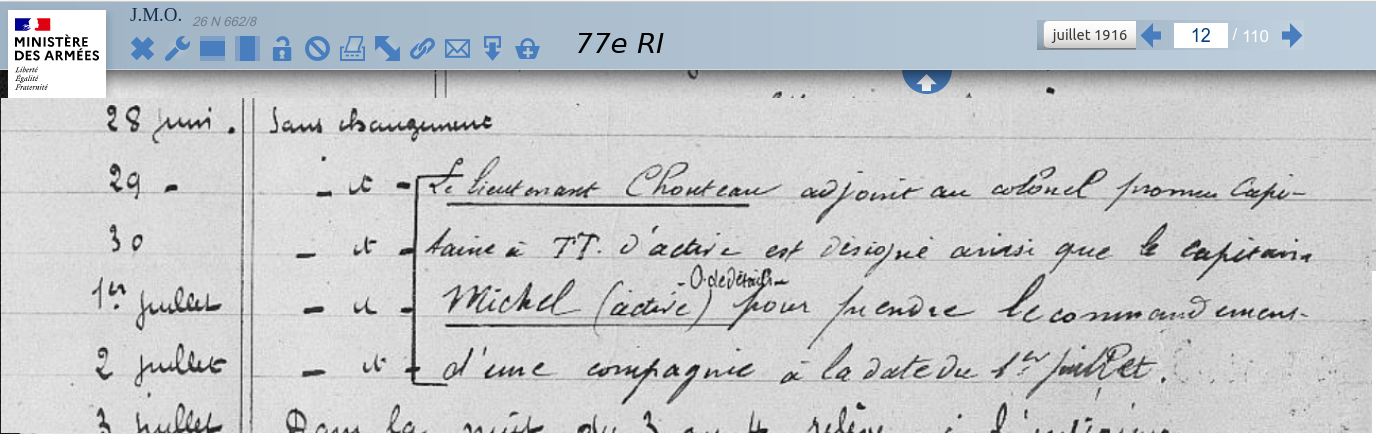 J.M.O. 26 N 662/8
MINISTÈRE
DES ARMÉES
Liberté
Égalité
Fraternité
77e RI
juillet 1916
12 / 110
28 juin. Sans changement
29 - - d° - Le lieutenant Chouteau adjoint au colonel promu Capi-
30 - d° - taine à TT. d'active est désigné ainsi que le capitaine
- O. de Détails -
1er juillet - d° - Michel (active) pour prendre le commandement
2 juillet - d° - d'une compagnie à la date du 1er juillet.
3 juillet Dans la nuit du 3 au 4 relève à l'intérieur